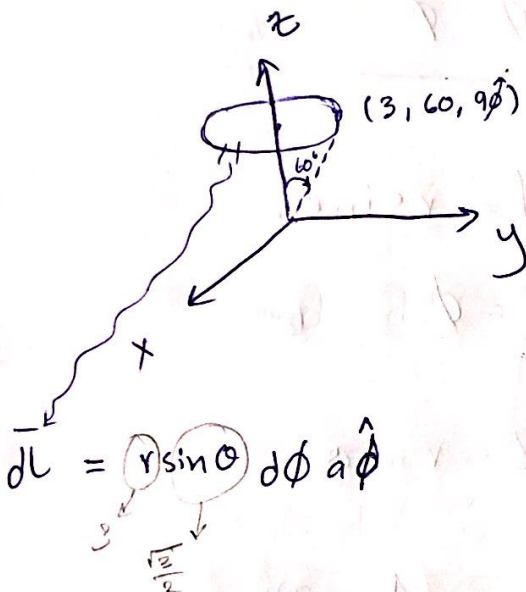 z
(3, 60, 90̂)
60°
y
x
dl̅ = r sinθ dϕ a ϕ̂
3
√3/2